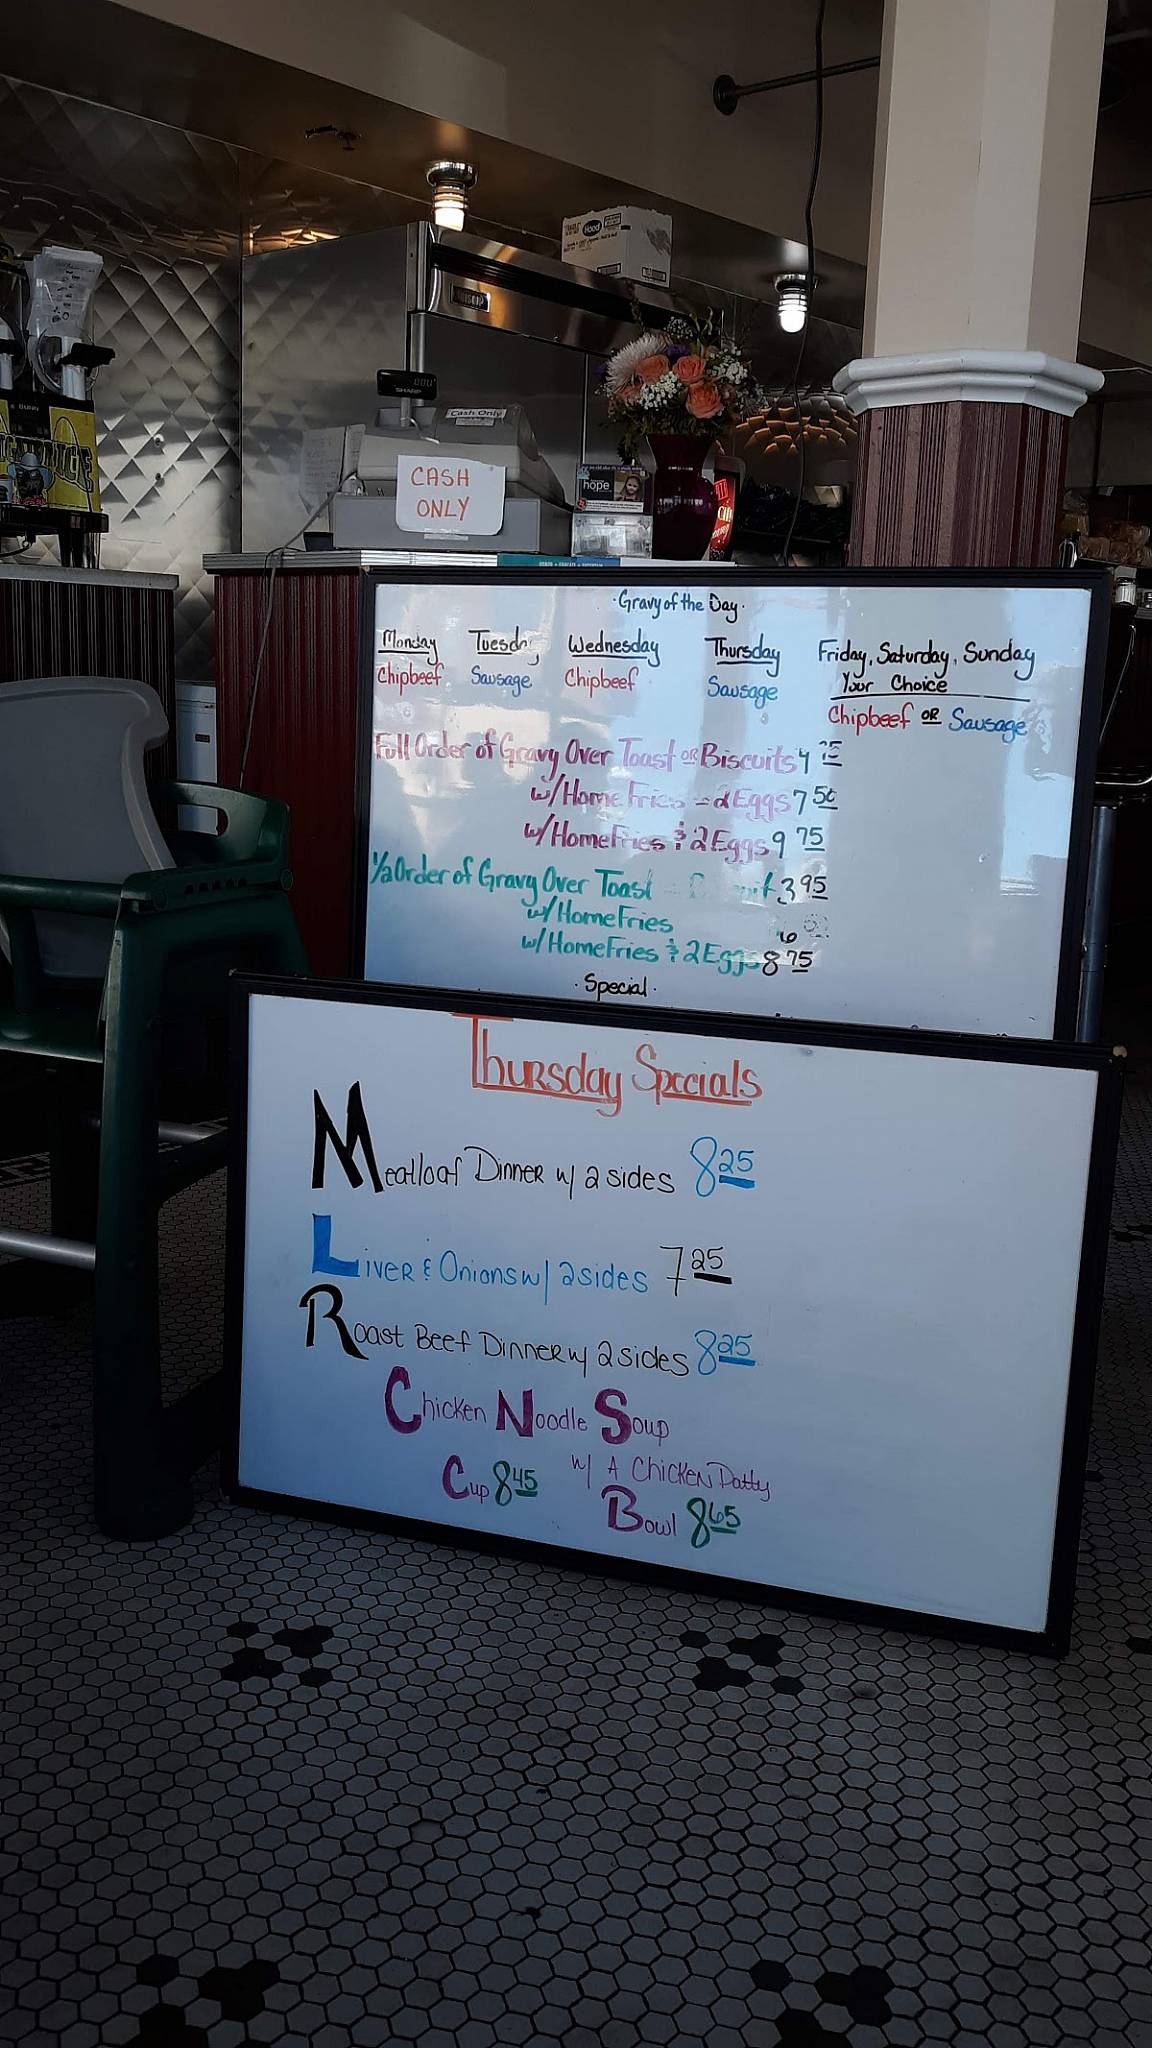 Hood
SHARP
Cash Only
CASH
ONLY
hope
BUNN
·Gravy of the Day·
Monday Tuesday Wednesday Thursday Friday, Saturday, Sunday
Chipbeef Sausage Chipbeef Sausage Your Choice
Chipbeef OR Sausage
Full Order of Gravy Over Toast OR Biscuits 4
w/Home Fries 2 Eggs 7 50
w/Home Fries & 2 Eggs 9 75
1/2 Order of Gravy Over Toast 3 95
w/Home Fries 6
w/Home Fries & 2 Eggs 8 75
·Special·
Thursday Specials
Meatloaf Dinner w/ 2 sides 8 25
Liver & Onions w/ 2 sides 7 25
Roast Beef Dinner w/ 2 sides 8 25
Chicken Noodle Soup
w/ A Chicken Patty
Cup 8 45 Bowl 8 65